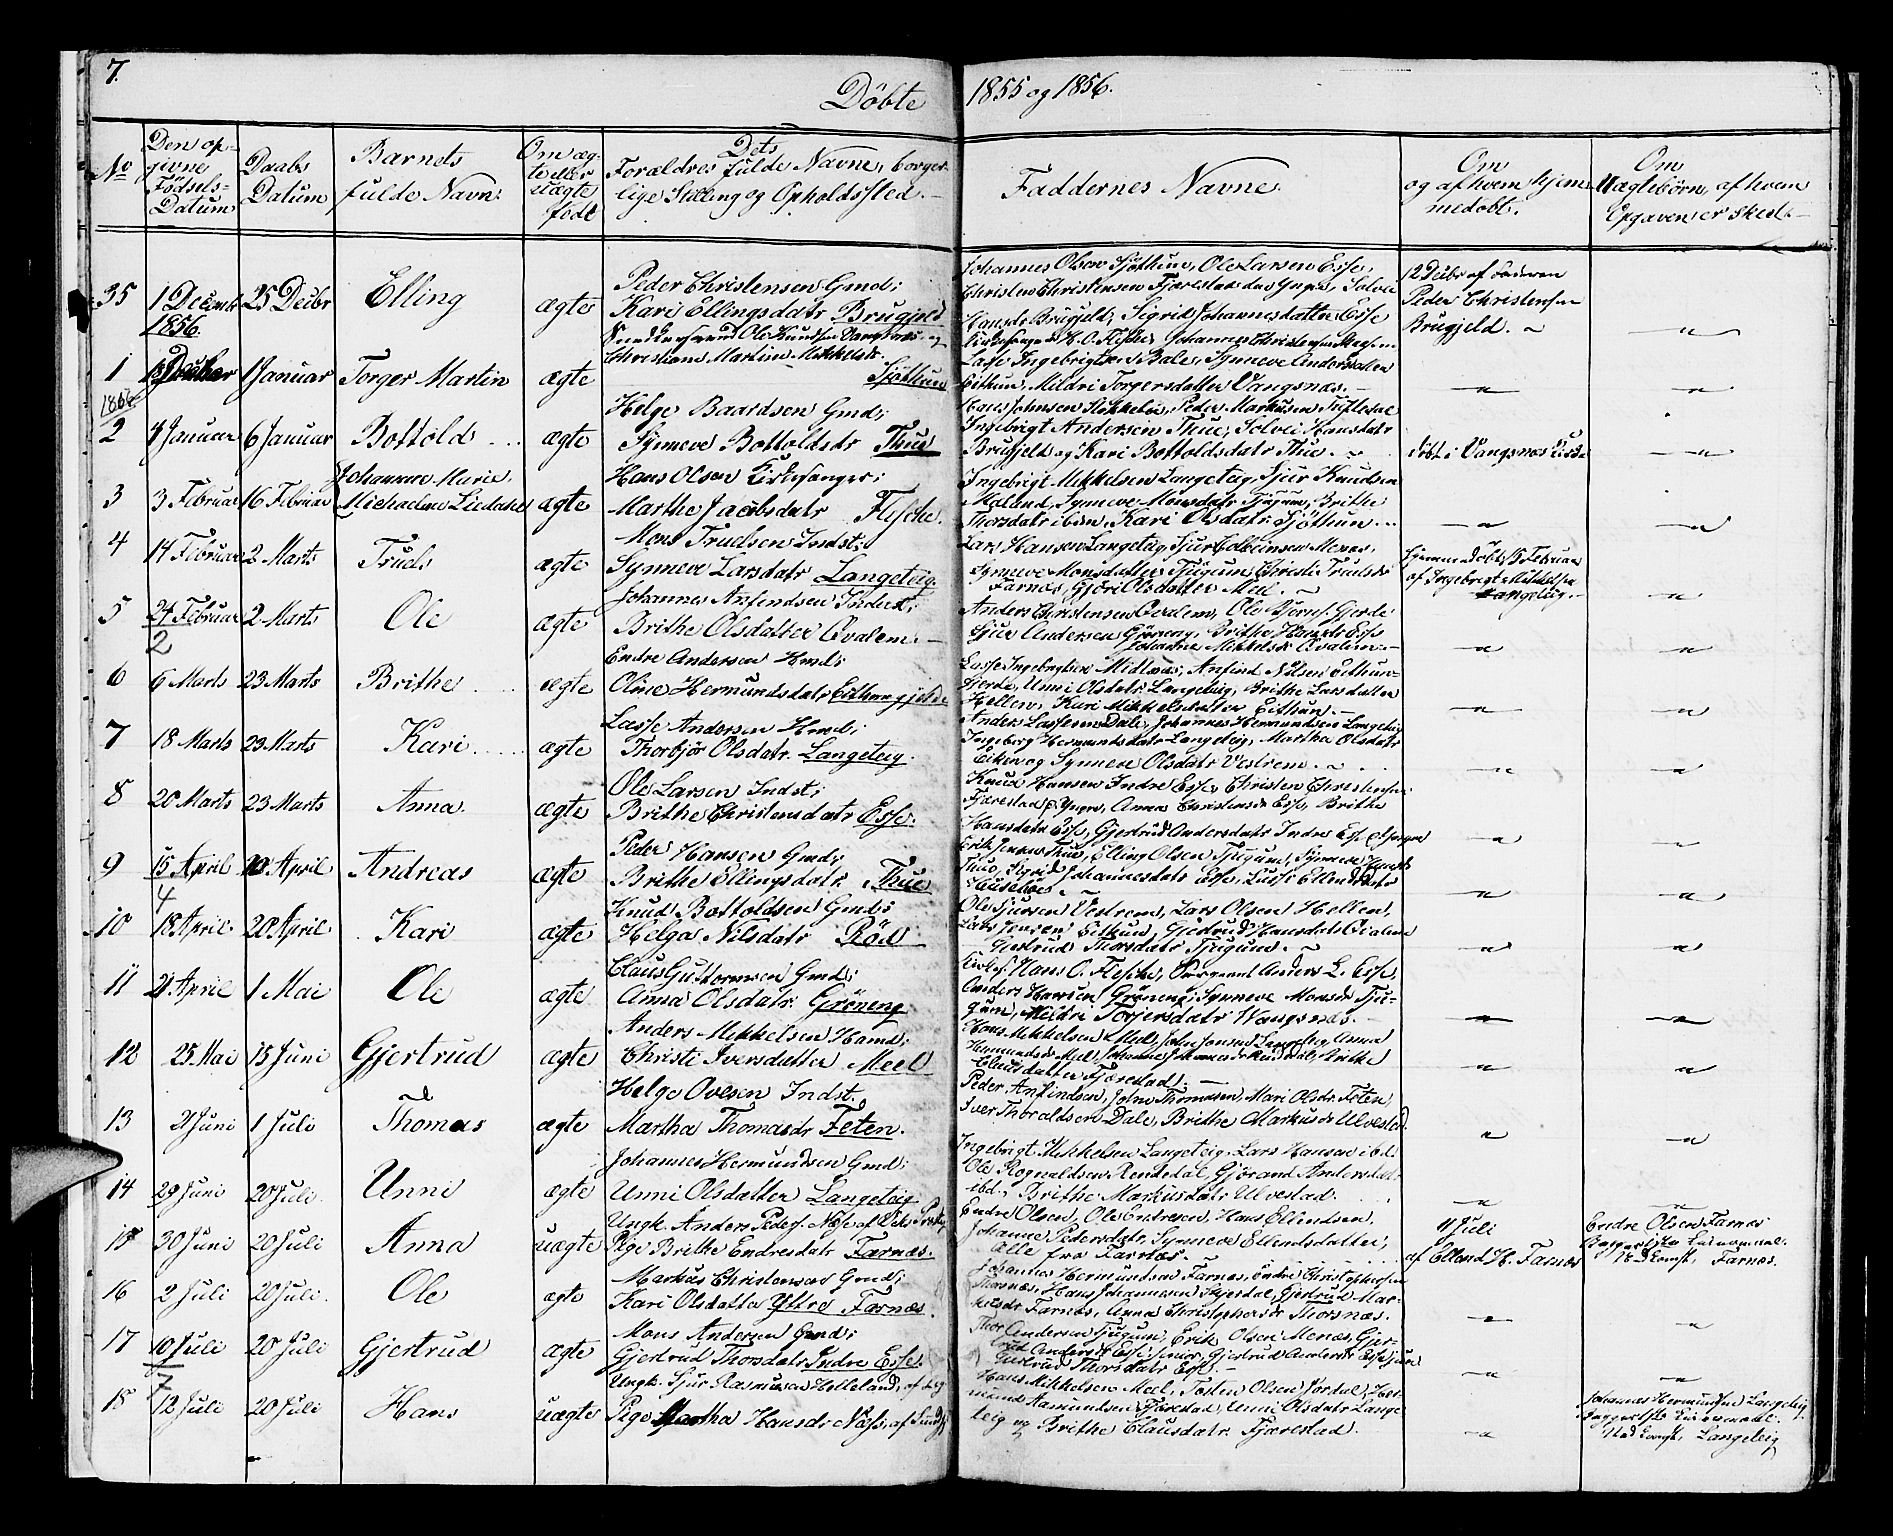 7.
Döbte 1855 og 1856.
No
Den op-
givne
Födsels-
Datum
Daabs
Datum
Barnets
fulde Navn:
Om æg-
te eller
uægte
födt
Dets
Forældres fulde Navne, borger-
lige Stilling og Opholdssted.
Faddernes Navne
Om
og af hvem hjem-
medöbt.
Om
Uægtebörn, af hvem
Opgaven er skeet
35 1 Decembr 25 Decbr Elling ægte
1856
Peder Christensen Gmd;
Kari Ellingsdatr Brugjeld
Johannes Olsen Sjøthun, Ole Larsen Esse,
Christen Christensen Fjærestad den Yngre, Solvei
Hansdr Brugjeld, Sigrid Johannesdatter Esse
12 Decbr af Faderen
Peder Christensen
Brugjeld.
1 1 Januar Torger Martin ægte
Ole Knudsen Vangsnæs og
Christiane Martine Mikkelsdr.
Sjöthun
Kirkesanger H. O. Flesche, Johannes Christensen
Lasse Ingebrigtsen Bale, Synneve Andersdatter
Eithun, Mildri Torgersdatter Vangsnæs.
1856
2 4 Januar 6 Januar Bottold ægte
Helge Baardsen Gmd;
Synneve Bottoldsdtr Thue
Hans Johnsen Stokkebö, Peder Markusen Tuftedal
Ingebrigt Andersen Thue, Solvei Hansdatr
Brugjeld og Kari Bottoldsdatr Thue.
döbt i Vangsnæs Kirke
3 3 Februar 16 Februar Johanne Marie
ægte
Hans Olsen Kirkesanger;
Marthe Jacobsdatr Flesche.
Ingebrigt Mikkelsen Langeteig, Sjur Knudsen
Synneve Monsdatr Tjugum, Brithe
Thorsdatr ibid, Kari Olsdatr Sjöthun.
4 14 Februar 2 Marts Truls ægte
Mons Trudsen Indst;
Synneve Larsdatr Langeteig
Lars Hansen Langeteig, Sjur Menes,
Synneve Monsdatter Tjugum, Christi Trulsdr
Farnæs, Gjöri Olsdatter Meel.
hjemmedöbt 15 Februar
af Ingebrigt Mikkelsen
Langeteig.
5 24 Februar 2 Marts Ole ægte
2
Johannes Anfindsen Inderst;
Brithe Olsdatter Qvalem.
Anders Christensen Qvalem, Ole Gjerde
Sjur Andersen Gröneng, Brithe Hansdr Esse
Johanne Mikkelsdr Qvalem.
6 9 Marts 23 Marts Brithe ægte
Endre Andersen Hmd;
Oline Hermundsdatr Eithungjelde
Lasse Ingebrigtsen Midlnæs, Anfind Nilsen Eithun-
gjerde, Unni Olsdatr Langeteig, Brithe Larsdatter
Hellen, Kari Mikkelsdatter Eithun.
7 18 Marts 23 Marts Kari ægte
Lasse Andersen Hmd;
Thorbjör Olsdatr. Langeteig.
Anders Lassesen Dale, Johannes Hermundsen Langeteig
Ingeborg Hermundsdatr Langeteig, Martha Olsdatr
Eiken og Synneve Olsdatr Vestrem.
8 20 Marts 23 Marts Anna ægte
Ole Larsen Indst;
Brithe Christensdatr Esse.
Knud Hansen Indre Esse, Christen Christensen
Fjærestad d. Yngre, Anna Christensdr Esse, Brithe
Hansdatr Esse, Gjertrud Andersdatr Indre Esse
9 15 April 20 April Andreas ægte
4
Peder Hansen Gmd;
Brithe Ellingsdatr. Thue
Erik Jensen Thue, Elling Olsen Tjugum, Synneve Hansdr
Thue, Sigrid Johannesdatr Esse, Lussi Ellendsdatr
10 18 April 20 April Kari ægte
Knud Bottoldsen Gmd;
Helga Nilsdatr Röd
Ole Sjursen Vestrem, Lars Olsen Hellen,
Lars Jensen Eithun, Gjertrud Hansdatr Qvalem
Gjertrud Thorsdatr Tjugum.
11 21 April 1 Mai Ole ægte
Claus Guttormsen Gmd;
Anna Olsdatr. Gröneng
Kirkes. Hans O. Flesche, Sergeant Anders L. Esse,
Anders Hansen Gröneng, Synneve Monsdr Tju-
gum, Mildri Torjersdatr Wangsnæs.
12 25 Mai 15 Juni Gjertrud ægte
Anders Mikkelsen Hamd;
Christi Iversdatter Meel
Hans Mikkelsen Meel, John Jonsen Langeteig, Anna
Hermundsdr Meel, Johanne Johannesdr Rendedal, Brithe
Clausdatter Fjærestad.
13 21 Juni 1 Juli Thomas ægte
Helge Ovesen Indst.
Martha Thomasdr Feten.
Peder Anfindsen, John Thomasen, Mari Olsdr. Feten,
Iver Thoraldsen Dale, Brithe Markusdr Ulvestad.
14 29 Juni 20 Juli Unni ægte
Johannes Hermundsen Gmd;
Unni Olsdatter Langeteig
Ingebrigt Mikkelsen Langeteig, Lars Hansen ibd.
Ole Rognaldsen Rendedal, Gjörand Andersdatr
ibd., Brithe Markusdatr Ulvestad.
15 30 Juni 20 Juli Anna uægte
Ungk. Anders Peders. Næse af Viks Prstgj
Pige Brithe Endresdatr Farnæs.
Endre Olsen, Ole Endresen, Hans Ellendsen,
Johanne Pedersdatr, Synneve Ellendsdatter,
Alle fra Farnæs.
11 Juli
af Ellend H. Farnæs
Endre Olsen Farnæs
Farnæs.
16 2 Juli 20 Juli Ole ægte
Markus Christensen Gmd;
Kari Olsdatter Yttre Farnæs.
Johannes Hermundsen Farnæs, Endre Christophersen
Thorsnæs, Hans Johannesen Skjerdal, Gjertrud Mar-
kusdr Farnæs, Anna Christophersdr Thorsnæs.
17 10 Juli 20 Juli Gjertrud ægte
7
Mons Andersen Gmd;
Gjertrud Thorsdatr Indre Esse.
Thor Andersen Tjugum, Erik Olsen Menæs, Gjer-
trud Andersdr Esse senior, Gjertrud Andersdr Esse junr
Gjertrud Thorsdatr Esse.
18 12 Juli 20 Juli Hans uægte
Ungk. Sjur Rasmusen Helleland, af
Pige Martha Hansdr Næss, af
Hans Mikkelsen Meel, Tosten Olsen Jordal, Her-
mund Rasmundsen Fjærestad, Unni Olsdatr Lange-
teig og Brithe Clausdatr. Fjærestad.
Johannes Hermundsen Langeteig
Langeteig